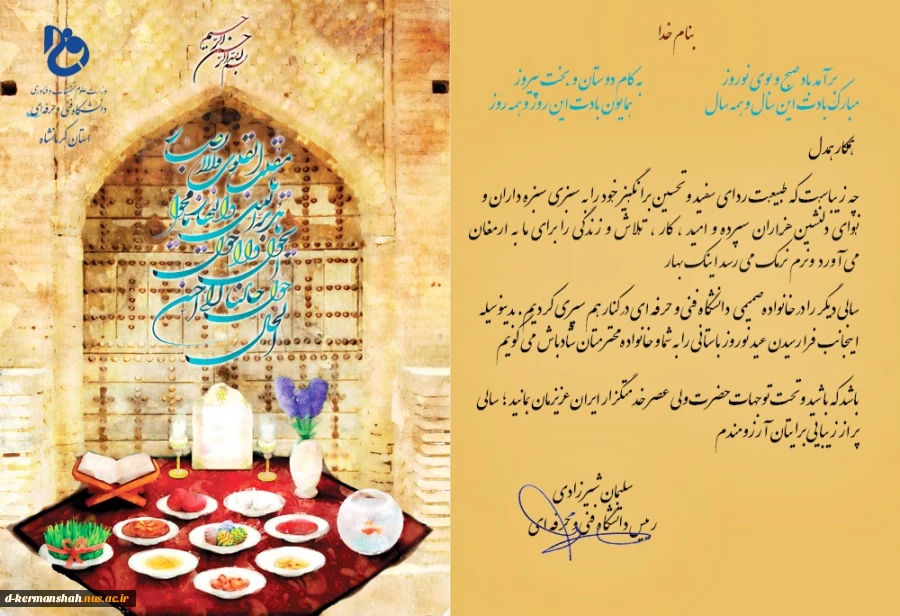 بسم الله الرحمن الرحیم
وزارت علوم، تحقیقات و فناوری
دانشگاه فنی و حرفه ای
استان کرمانشاه
یا مقلب القلوب والابصار
یا مدبر اللیل والنهار
یا محول الحول والاحوال
حول حالنا الی احسن الحال
d-kermanshah.nus.ac.ir
بنام خدا
برآمد باد صبح و بوی نوروز به کام دوستان و بخت پیروز
مبارک بادت این سال و همه سال همایون بادت این روز و همه روز
همکار همدل
چه زیباست که طبیعت ردای سفید و تحسین برانگیز خود را به سبزی سبزه داران و
نوای دلنشین هزاران سپرده و امید ، کار ، تلاش و زندگی را برای ما به ارمغان
می آورد و نرم نرمک می رسد اینک بهار
سالی دیگر را در خانواده صمیمی دانشگاه فنی و حرفه ای در کنار هم سپری کردیم . بدینوسیله
اینجانب فرا رسیدن عید نوروز باستانی را به شما و خانواده محترمتان شادباش می گویم
باشد که باشید و تحت توجهات حضرت ولی عصر خدمتگزار ایران عزیزمان بمانید ؛ سالی
پر از زیبایی برایتان آرزومندم
سلیمان شیرزادی
رییس دانشگاه فنی و حرفه ای